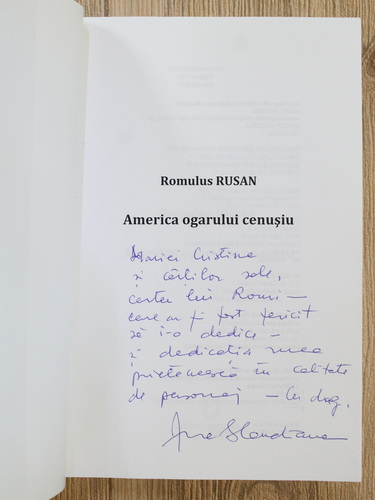 Romulus RUSAN
America ogarului cenușiu
Mariei Cristina
și cărților sale,
cartea lui Romi —
care ar fi fost fericit
să i-o dedice —
și dedicația mea
prietenească în calitate
de personaj — Cu drag,
Ana Blandiana